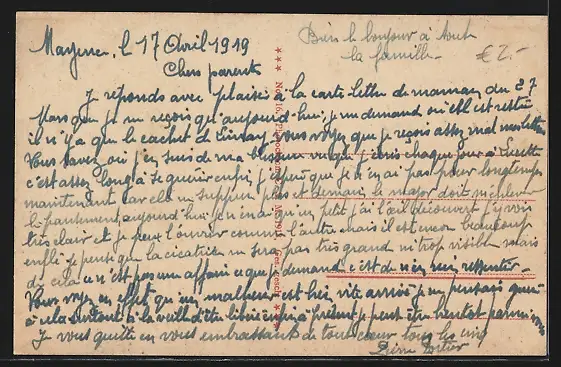 Mayence, le 17 Avril 1919
Bien le bonjour à toute
la famille
€ 2.-
Chers parents
Je réponds avec plaisir à la carte lettre de maman du 27
Mars que je ne reçois qu'aujourd'hui, je me demand où elle est restée
il n'y a que le cachet de vous voyez que je reçois assez mal mes lettres
Vous savez où j'en suis de ma blessure j'écris chaque jour à Lucette
c'est assez long à se guérir enfin j'espère que je n'en ai pas pour longtemps
maintenant car elle ne suppure plus et demain le major doit m'enlever
le pansement, aujourd'hui je n'en ai qu'un petit j'ai l'œil découvert j'y vois
très clair et je peux l'ouvrir comme l'autre mais il est encore beaucoup
enflé je pense que la cicatrice ne sera pas très grande ni trop visible mais
de cela ce n'est pas une affaire ce que je demande c'est de n'en rien ressentir
Vous voyez en effet qu'un malheur est bien vite arrivé je ne pensais guère
à cela surtout à la veille d'être libéré enfin à présent je peut être bientôt parmi vous
Je vous quitte en vous embrassant de tout cœur tous les cinq
Pierre